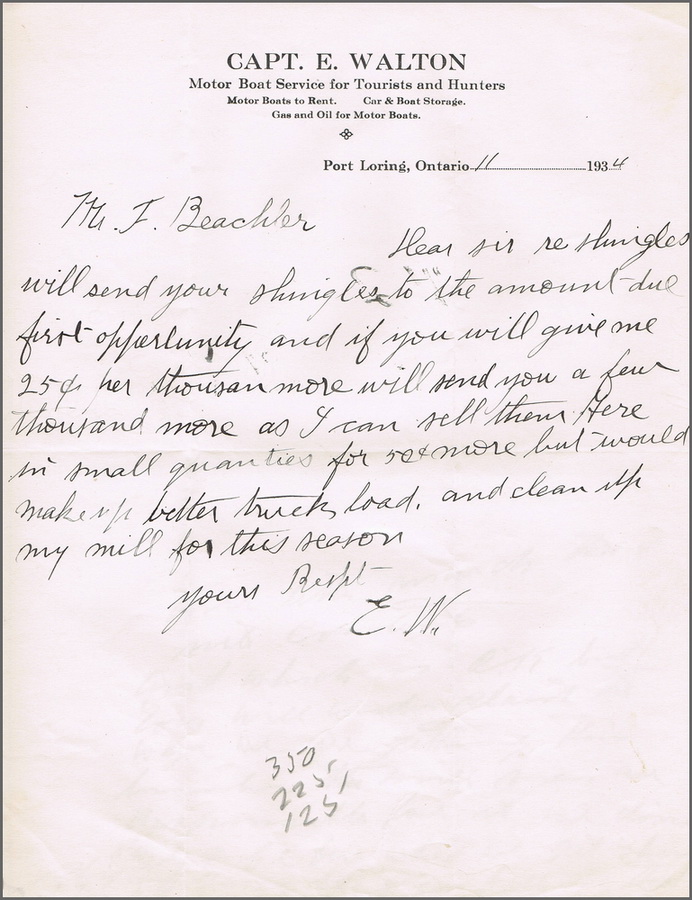 CAPT. E. WALTON
Motor Boat Service for Tourists and Hunters
Motor Boats to Rent. Car & Boat Storage.
Gas and Oil for Motor Boats.
Port Loring, Ontario 11 1934
Mr. F. Beachler
Dear sir re shingles
will send your shingles to the amount due
first opportunity and if you will give me
25¢ per thousan more will send you a few
thousand more as I can sell them Here
in small quanties for 50¢ more but would
make up better truck load. and clean up
my mill for this season
yours Respt
E. W.
350
225
125